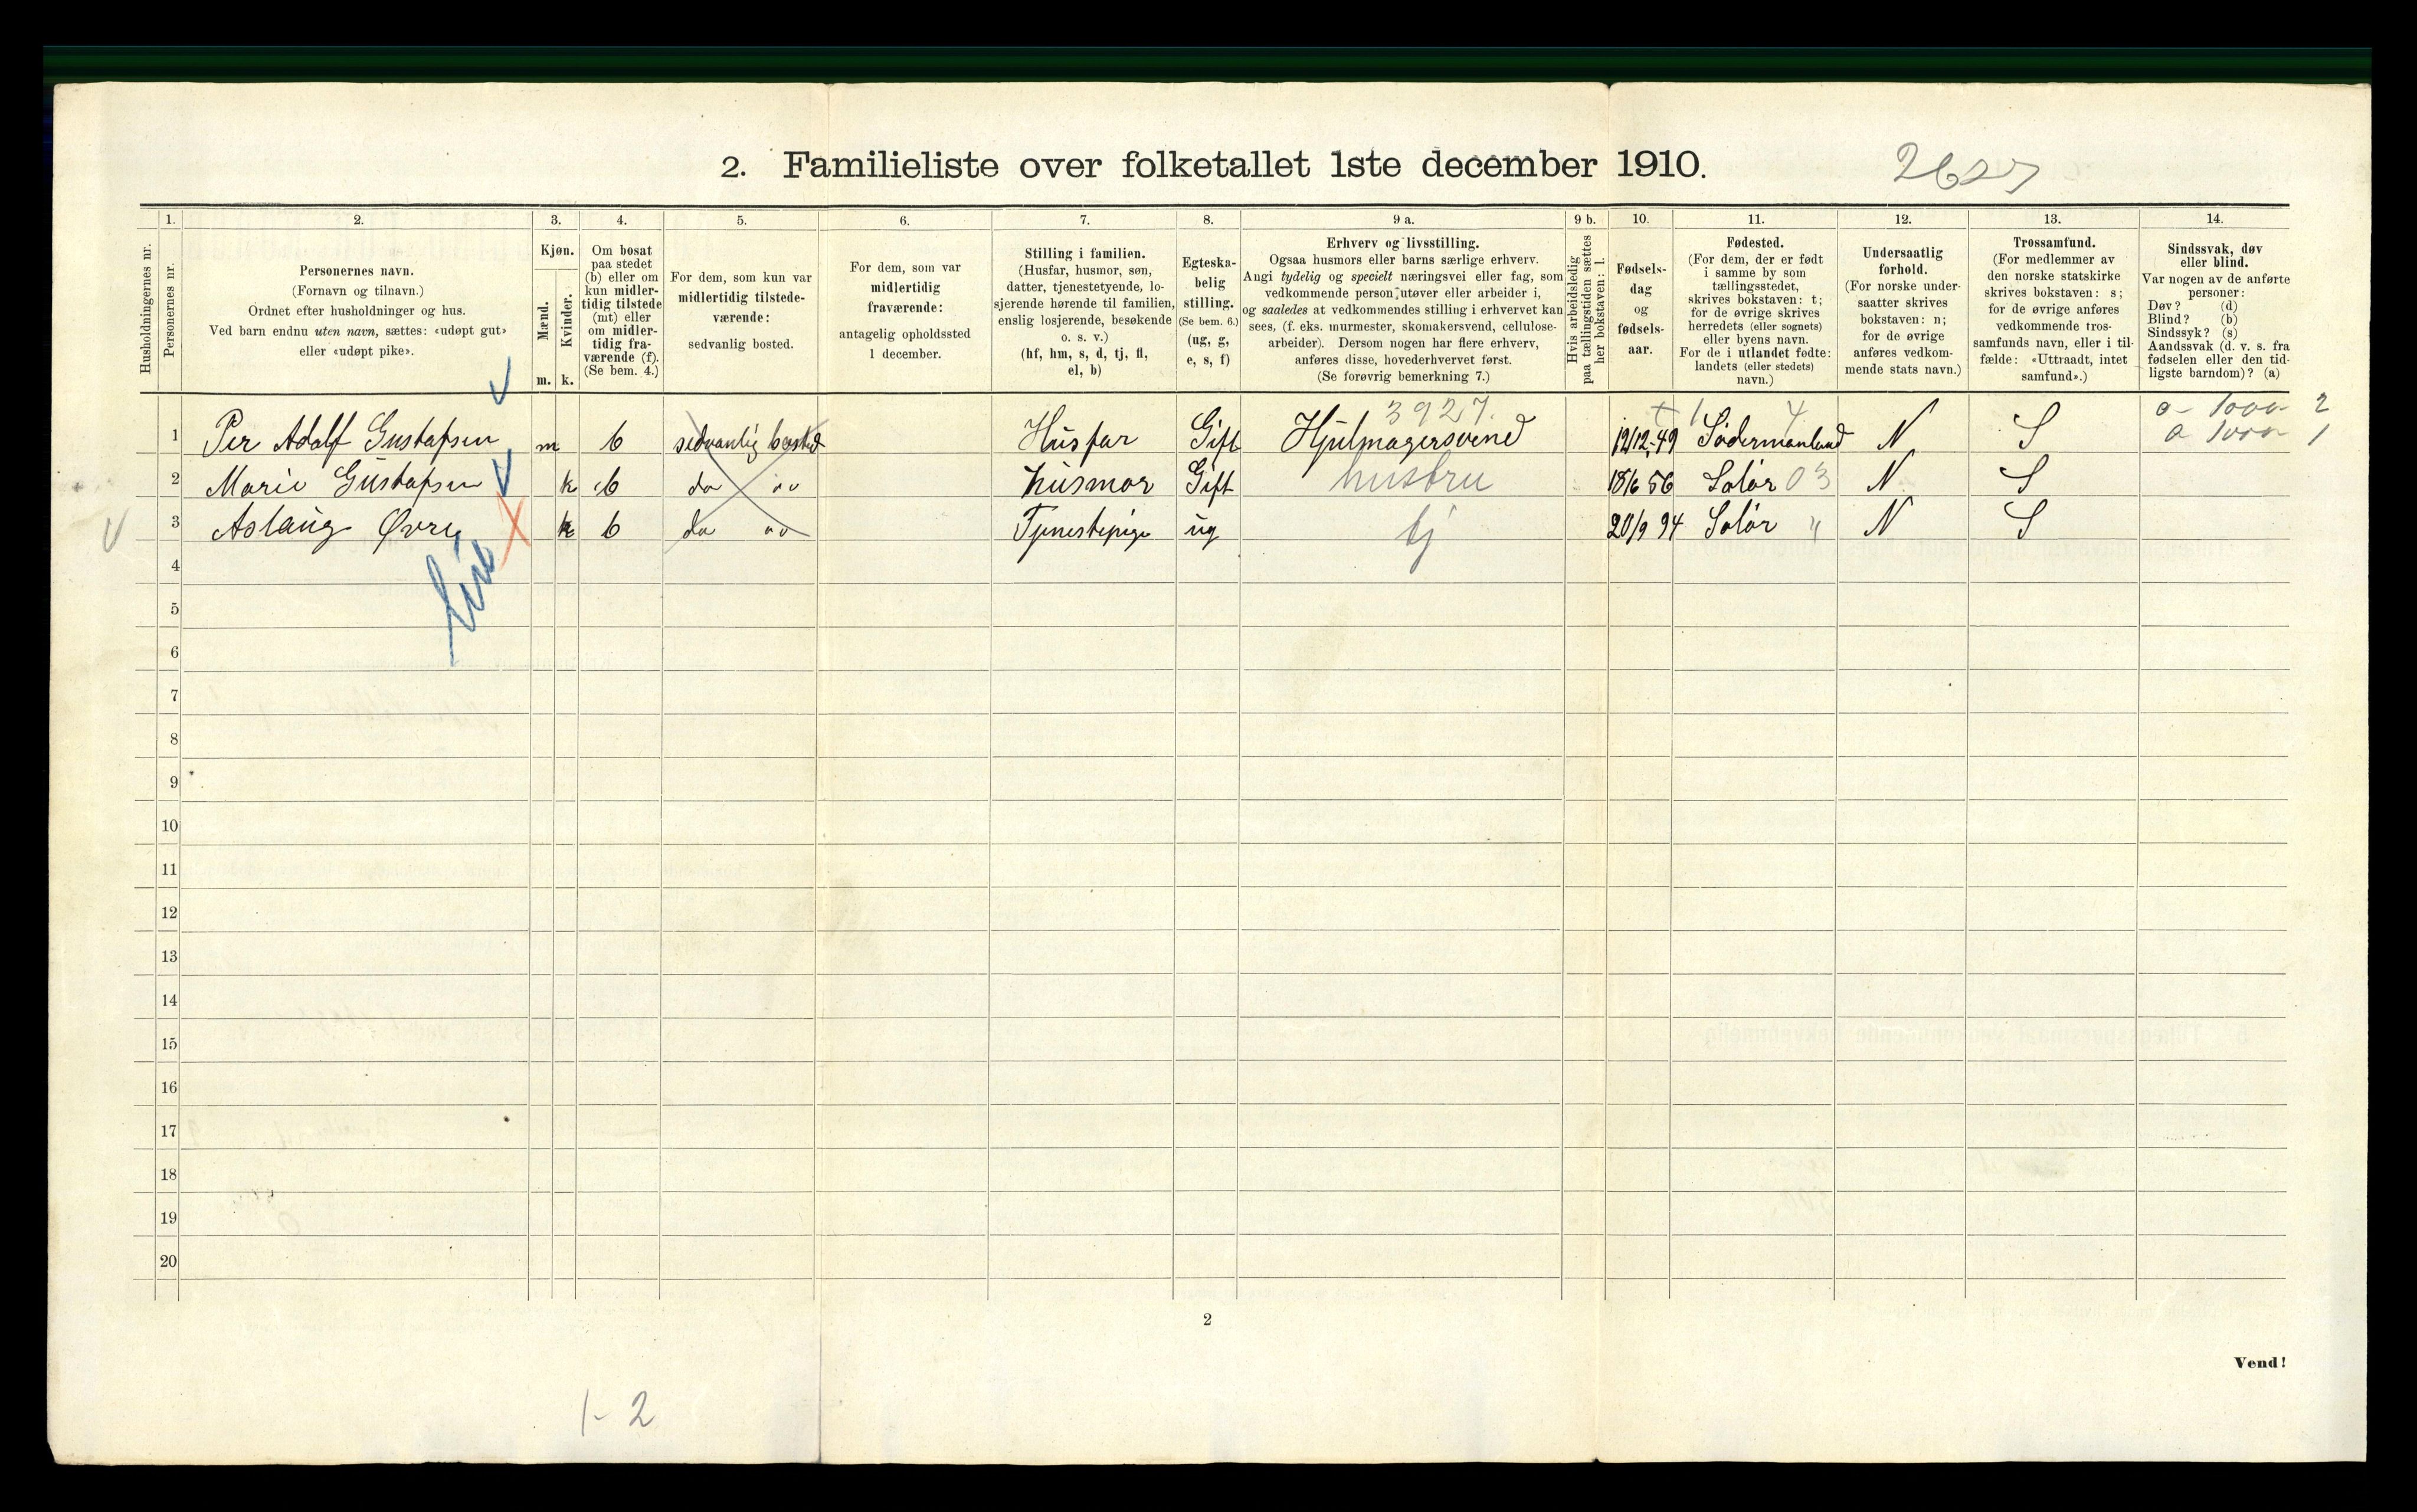 2. Familieliste over folketallet 1ste december 1910.
2627
Husholdningernes nr.
1.
Personernes nr.
2.
Personernes navn.
(Fornavn og tilnavn.)
Ordnet efter husholdninger og hus.
Ved barn endnu uten navn, sættes: «udøpt gut»
eller «udøpt pike».
3.
Kjøn.
Mænd.
Kvinder.
m. k.
4.
Om bosat
paa stedet
(b) eller om
kun midler-
tidig tilstede
(mt) eller
om midler-
tidig fra-
værende (f).
(Se bem. 4.)
5.
For dem, som kun var
midlertidig tilstede-
værende:
sedvanlig bosted.
6.
For dem, som var
midlertidig
fraværende:
antagelig opholdssted
1 december.
7.
Stilling i familien.
(Husfar, husmor, søn,
datter, tjenestetyende, lo-
sjerende hørende til familien,
enslig losjerende, besøkende
o. s. v.)
(hf, hm, s, d, tj, fl,
el, b)
8.
Egteska-
belig
stilling.
(Se bem. 6.)
(ug, g,
e, s, f)
9 a.
Erhverv og livsstilling.
Ogsaa husmors eller barns særlige erhverv.
Angi tydelig og specielt næringsvei eller fag, som
vedkommende person utøver eller arbeider i,
og saaledes at vedkommendes stilling i erhvervet kan
sees, (f. eks. murmester, skomakersvend, cellulose-
arbeider). Dersom nogen har flere erhverv,
anføres disse, hovederhvervet først.
(Se forøvrig bemerkning 7.)
9 b.
Hvis arbeidsledig
paa tællingstiden sættes
her bokstaven: l.
10.
Fødsels-
dag
og
fødsels-
aar.
11.
Fødested.
(For dem, der er født
i samme by som
tællingsstedet,
skrives bokstaven: t;
for de øvrige skrives
herredets (eller sognets)
eller byens navn.
For de i utlandet fødte:
landets (eller stedets)
navn.)
12.
Undersaatlig
forhold.
(For norske under-
saatter skrives
bokstaven: n;
for de øvrige
anføres vedkom-
mende stats navn.)
13.
Trossamfund.
(For medlemmer av
den norske statskirke
skrives bokstaven: s;
for de øvrige anføres
vedkommende tros-
samfunds navn, eller i til-
fælde: «Uttraadt, intet
samfund».)
14.
Sindssvak, døv
eller blind.
Var nogen av de anførte
personer:
Døv? (d)
Blind? (b)
Sindssyk? (s)
Aandssvak (d. v. s. fra
fødselen eller den tid-
ligste barndom)? (a)
3927.
1 Per Adolf Gustafsen m b sedvanlig bosted Husfar Gift Hjulmagersvend 12/12-49 Södermanland N S
2 Marie Gustafsen k b do Husmor Gift hustru 18/6 56 Solör 03 N S
3 Aslaug Øvre k b do Tjenestepige ug tj 20/9 94 Solör " N S
4
5
6
7
8
9
10
11
12
13
14
15
16
17
18
19
20
2
Vend!
1-2